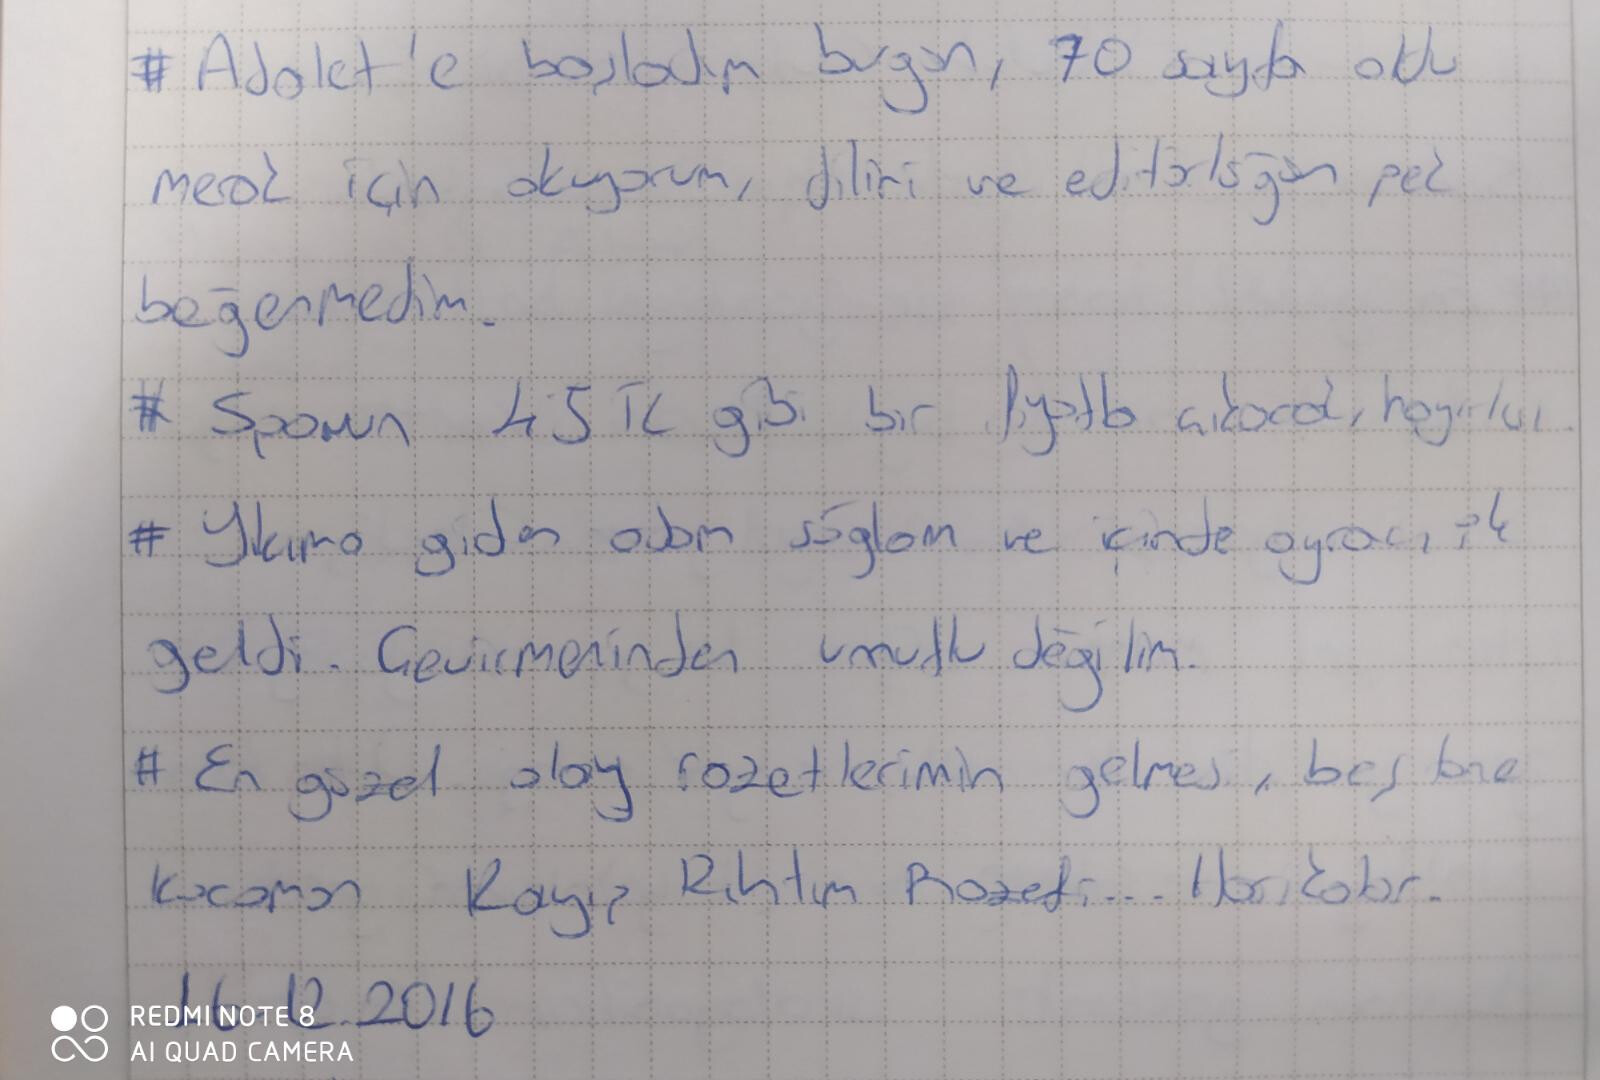 # Adalet'e başladım bugün, 70 sayfa oldu
merak için okuyorum, dilini ve editörlüğün pek
beğenmedim.
# Spawn 45 TL gibi bir fiyatla çıkacak, hayırlısı.
# Yıkıma giden adam sağlam ve içinde ayracı ile
geldi. Çevirmeninden umutlu değilim.
# En güzel olay rozetlerimin gelmesi, beş tane
kocaman Kayıp Rıhtım Rozeti... Harikalar.
16.12.2016
REDMI NOTE 8
AI QUAD CAMERA